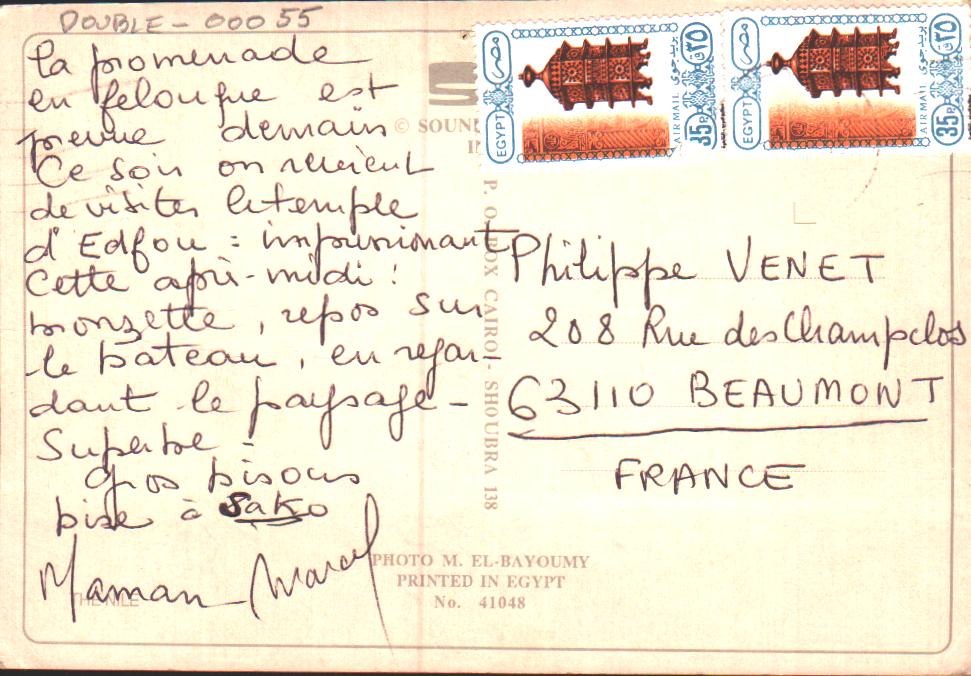 DOUBLE - 00055
La promenade
en felouque est
prevue demain
Ce soir on revient
de visiter le temple
d'Edfou = impressionant
Cette après-midi :
bronzette, repos sur
le bateau, en regar-
dant le paysage -
Superbe -
Gros bisous
bise à Sako
Maman Marcel
THE NILE
© SOUND
P. O. BOX CAIRO - SHOUBRA 138
مصر
EGYPT
بريد جوى
AIR MAIL
٣٥
35P
مصر
EGYPT
بريد جوى
AIR MAIL
٣٥
35P
Philippe VENET
208 Rue des Champclos
63110 BEAUMONT
FRANCE
PHOTO M. EL-BAYOUMY
PRINTED IN EGYPT
No. 41048